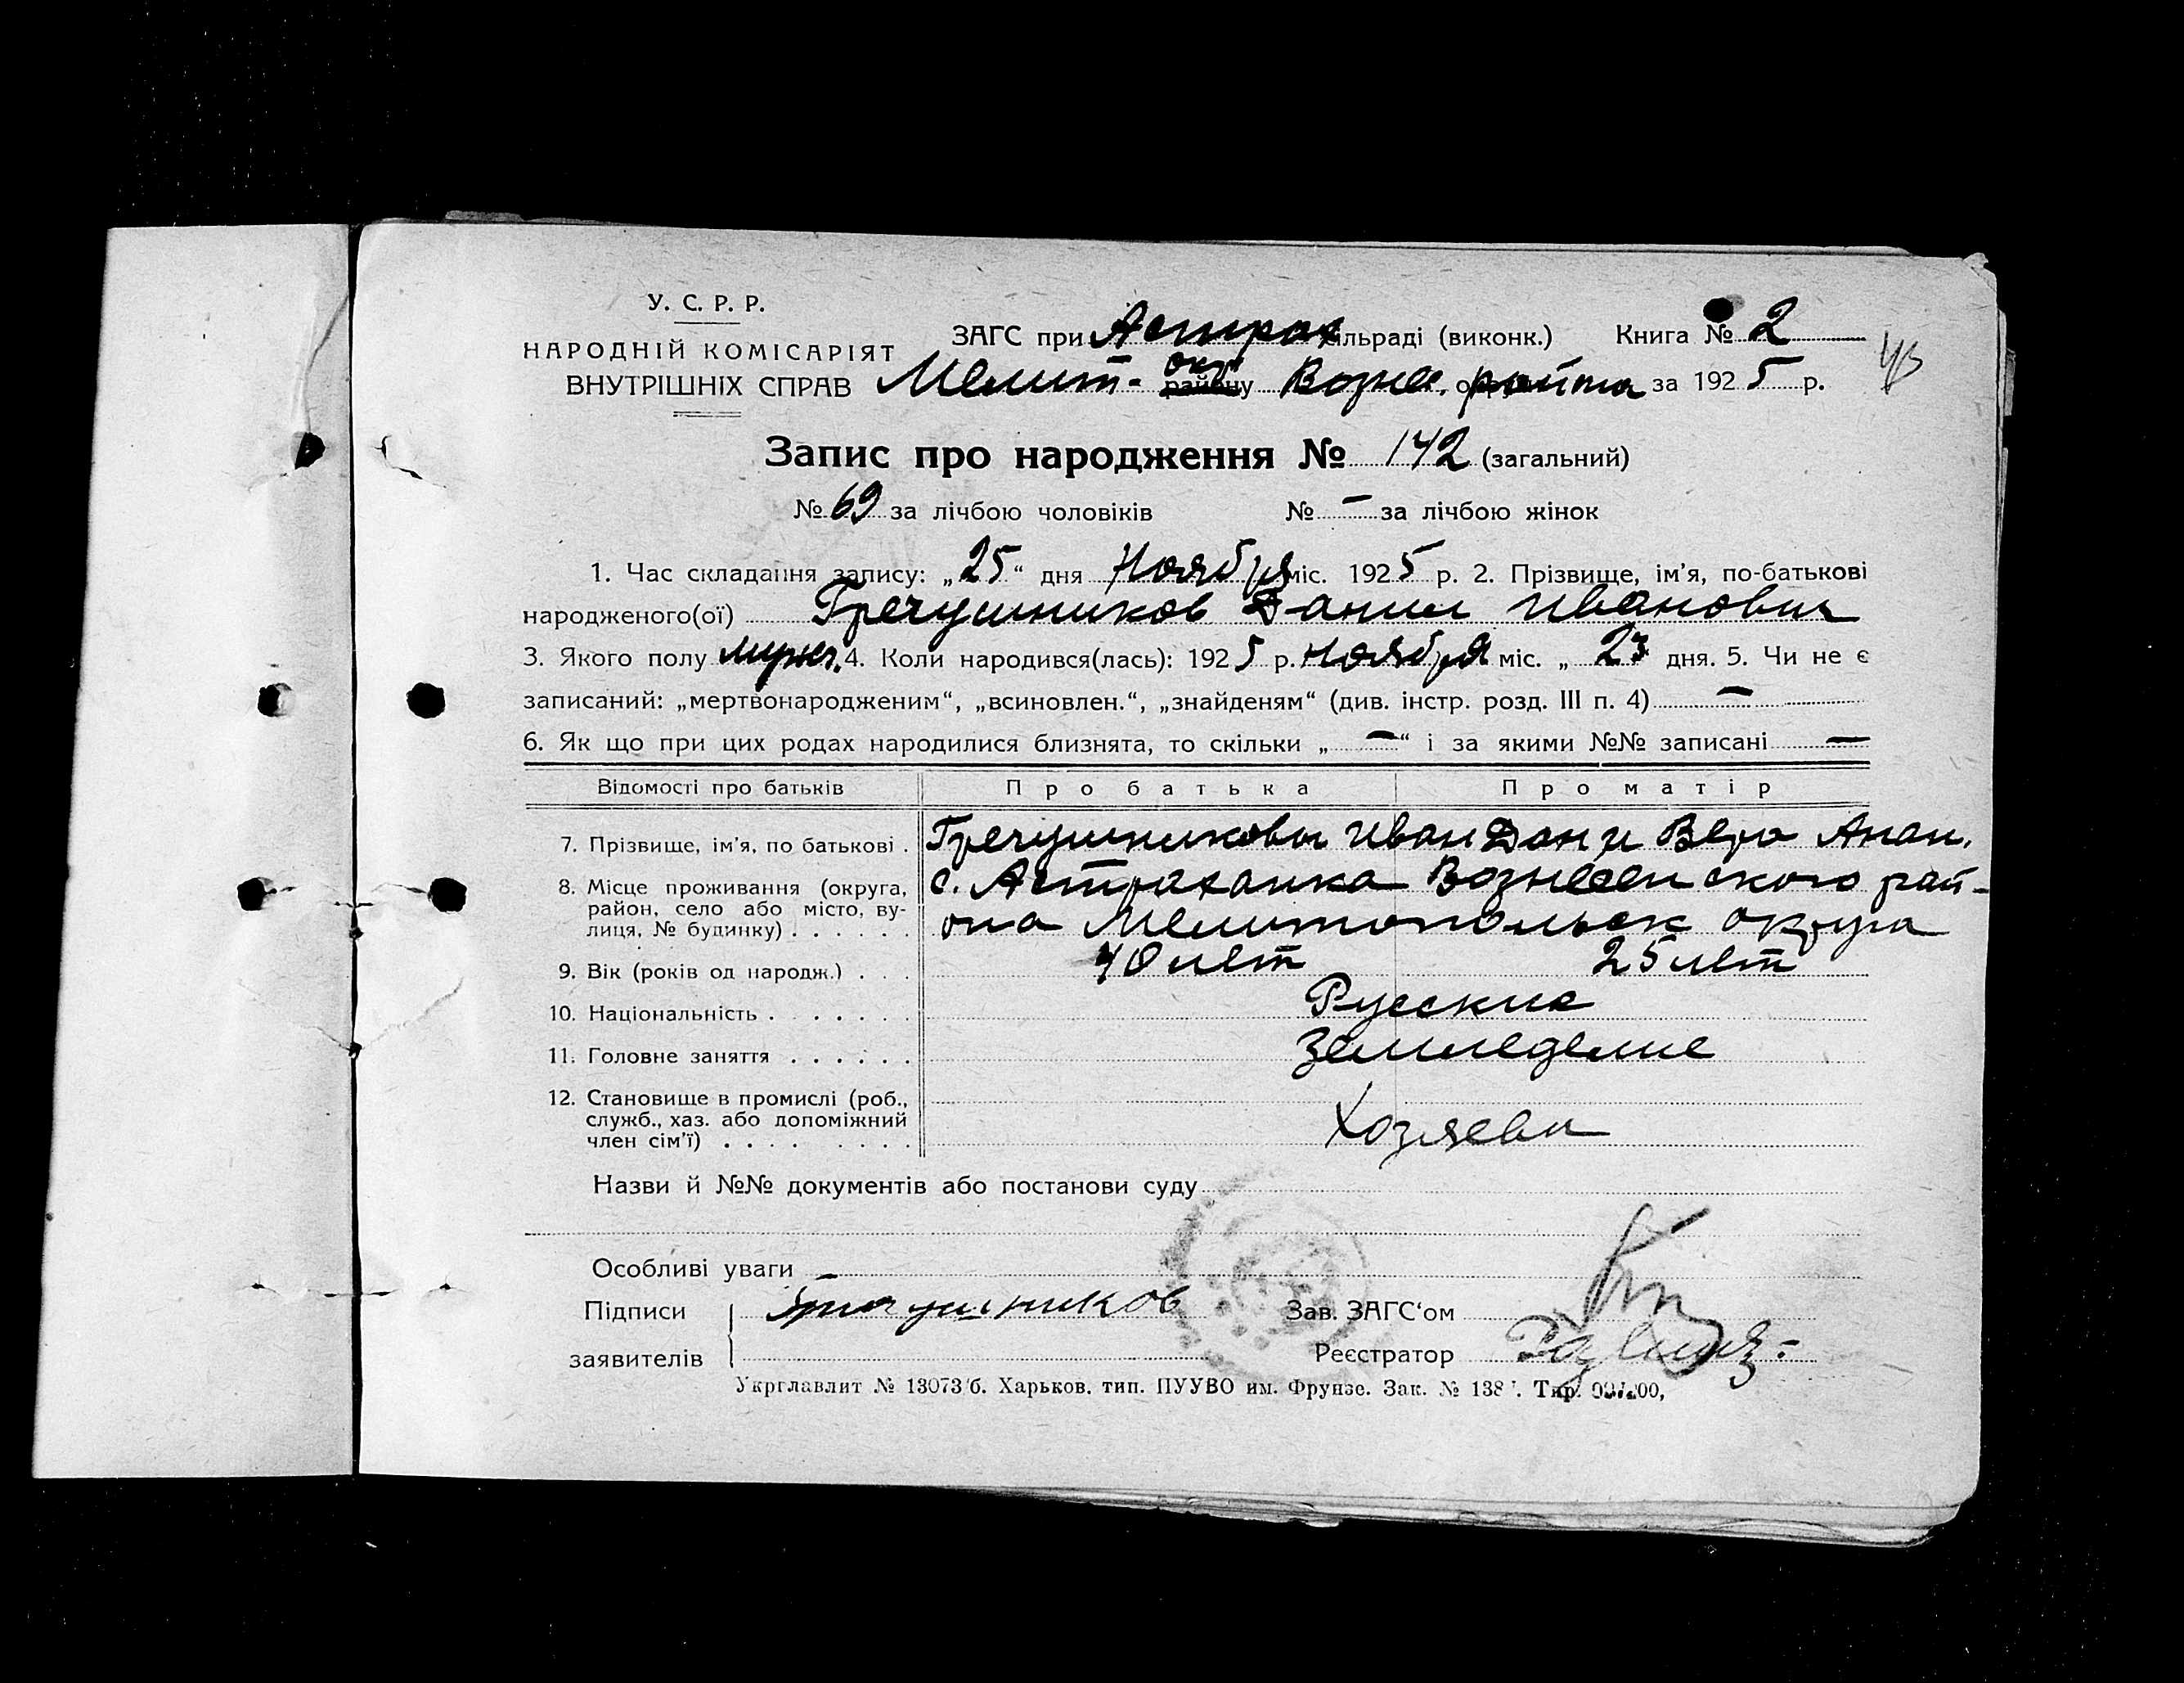 У. С. Р. Р.
НАРОДНІЙ КОМІСАРІЯТ
ВНУТРІШНІХ СПРАВ
ЗАГС при Астрах сільраді (виконк.) Книга № 2
Мелит. окр району Возне. района за 1925 р.
Запис про народження № 142 (загальний)
№ 69 за лічбою чоловіків № — за лічбою жінок
1. Час складання запису: „25“ дня Ноября міс. 1925 р. 2. Прізвище, ім'я, по-батькові
народженого(ої) Гречушников Данил Иванович
3. Якого полу мужс. 4. Коли народився(лась): 1925 р. Ноября міс. „ 23 дня. 5. Чи не є
записаний: „мертвонародженим“, „всиновлен.“, „знайденям“ (див. інстр. розд. III п. 4) —
6. Як що при цих родах народилися близнята, то скільки „ — “ і за якими №№ записані —
Відомості про батьків Про батька Про матір
7. Прізвище, ім'я, по батькові . Гречушниковы Иван Дан и Вера Анан.
8. Місце проживання (округа, с. Астраханка Вознесенского рай-
район, село або місто, ву-
лиця, № будинку) . . . . . . она Мелитопольск округа
9. Вік (років од народж.) . . . 40 лет 25 лет
10. Національність . . . . . . . Русские
11. Головне заняття . . . . . . Земледелие
12. Становище в промислі (роб.,
служб., хаз. або допоміжний
член сім'ї) . . . . . . . . . Хозяева
Назви й №№ документів або постанови суду
Особливі уваги
Підписи Гречушников Зав. ЗАГС‘ом
заявителів Реєстратор
Укрглавлит № 13073/б. Харьков. тип. ПУУВО им. Фрунзе. Зак. № 138 . Тир.